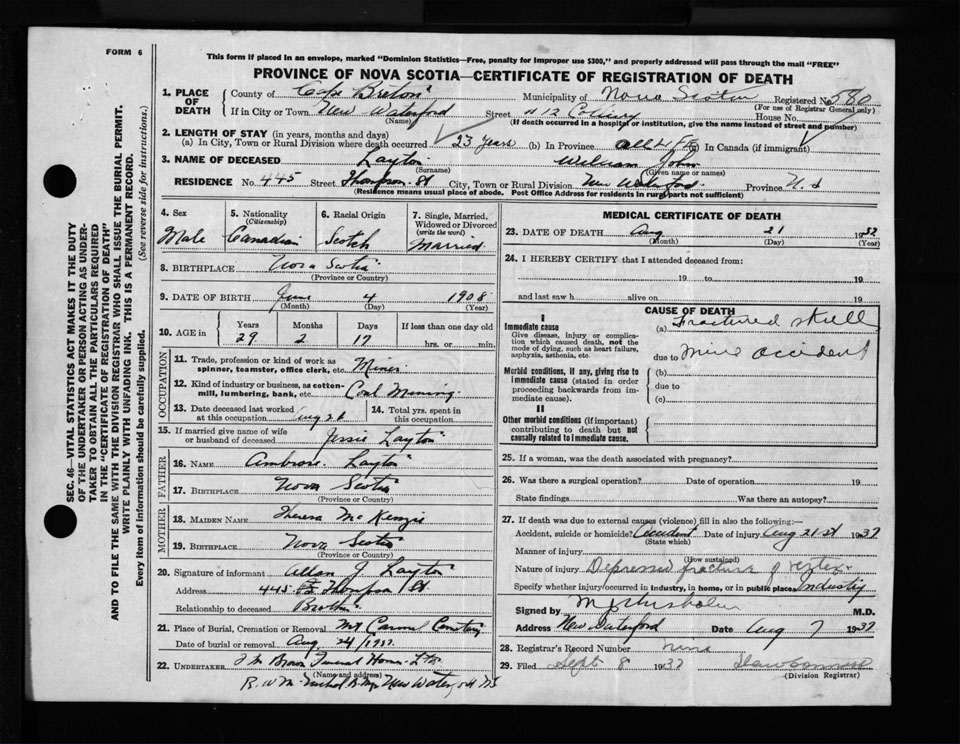 FORM 6
This form if placed in an envelope, marked "Dominion Statistics—Free, penalty for improper use $300," and properly addressed will pass through the mail "FREE"
PROVINCE OF NOVA SCOTIA—CERTIFICATE OF REGISTRATION OF DEATH
1. PLACE OF DEATH
County of Cape Breton
Municipality of Nova Scotia
Registered No. 580
(For use of Registrar General only)
If in City or Town New Waterford
(Name)
Street # 12 Colliery
House No.
(If death occurred in a hospital or institution, give the name instead of street and number)
2. LENGTH OF STAY (in years, months and days)
(a) In City, Town or Rural Division where death occurred 23 years (b) In Province all life (c) In Canada (if immigrant)
3. NAME OF DECEASED Layton William John
(Surname) (Given name or names)
RESIDENCE No. 445 Street Thompson St City, Town or Rural Division New Waterford Province N.S
(Residence means usual place of abode. Post Office Address for residents in rural parts not sufficient)
4. Sex
Male
5. Nationality
(Citizenship)
Canadian
6. Racial Origin
Scotch
7. Single, Married, Widowed or Divorced
(write the word)
Married
8. BIRTHPLACE Nova Scotia
(Province or Country)
9. DATE OF BIRTH June 4 1908
(Month) (Day) (Year)
10. AGE in
Years Months Days If less than one day old
29 2 17 hrs. or min.
OCCUPATION
11. Trade, profession or kind of work as
spinner, teamster, office clerk, etc. Miner
12. Kind of industry or business, as cotton-
mill, lumbering, bank, etc. Coal Mining
13. Date deceased last worked
at this occupation Aug 21
14. Total yrs. spent in
this occupation
15. If married give name of wife
or husband of deceased Jessie Layton
FATHER
16. NAME Ambrose Layton
17. BIRTHPLACE Nova Scotia
(Province or Country)
MOTHER
18. MAIDEN NAME Theresa McKenzie
19. BIRTHPLACE Nova Scotia
(Province or Country)
20. Signature of informant Allan J Layton
Address 445 Thompson St.
Relationship to deceased Brother
21. Place of Burial, Cremation or Removal Mt Carmel Cemetery
Date of burial or removal Aug 24/1937
22. UNDERTAKER Funeral Home
(Name and address)
New Waterford NS
MEDICAL CERTIFICATE OF DEATH
23. DATE OF DEATH Aug 21 1937
(Month) (Day) (Year)
24. I HEREBY CERTIFY that I attended deceased from:
19 to 19
and last saw h alive on 19
CAUSE OF DEATH
I
Immediate cause
Give disease, injury or complication which caused death, not the mode of dying, such as heart failure, asphyxia, asthenia, etc.
(a) Fractured skull
due to Mine accident
Morbid conditions, if any, giving rise to immediate cause (stated in order proceeding backwards from immediate cause).
(b)
due to
(c)
II
Other morbid conditions (if important) contributing to death but not causally related to immediate cause.
25. If a woman, was the death associated with pregnancy?
26. Was there a surgical operation? Date of operation 19
State findings Was there an autopsy?
27. If death was due to external causes (violence) fill in also the following:—
Accident, suicide or homicide? Accident Date of injury Aug 21st 1937
(State which)
Manner of injury
(How sustained)
Nature of injury Depressed fracture of vertex
Specify whether injury occurred in industry, in home, or in public place Industry
Signed by M.D.
Address New Waterford Date Aug 7 1937
28. Registrar's Record Number nine
29. Filed Sept 8 1937
(Division Registrar)
SEC. 46—VITAL STATISTICS ACT MAKES IT THE DUTY
OF THE UNDERTAKER OR PERSON ACTING AS UNDER-
TAKER TO OBTAIN ALL THE PARTICULARS REQUIRED
IN THE "CERTIFICATE OF REGISTRATION OF DEATH"
AND TO FILE THE SAME WITH THE DIVISION REGISTRAR WHO SHALL ISSUE THE BURIAL PERMIT.
WRITE PLAINLY WITH UNFADING INK. THIS IS A PERMANENT RECORD.
Every item of information should be carefully supplied. (See reverse side for instructions.)